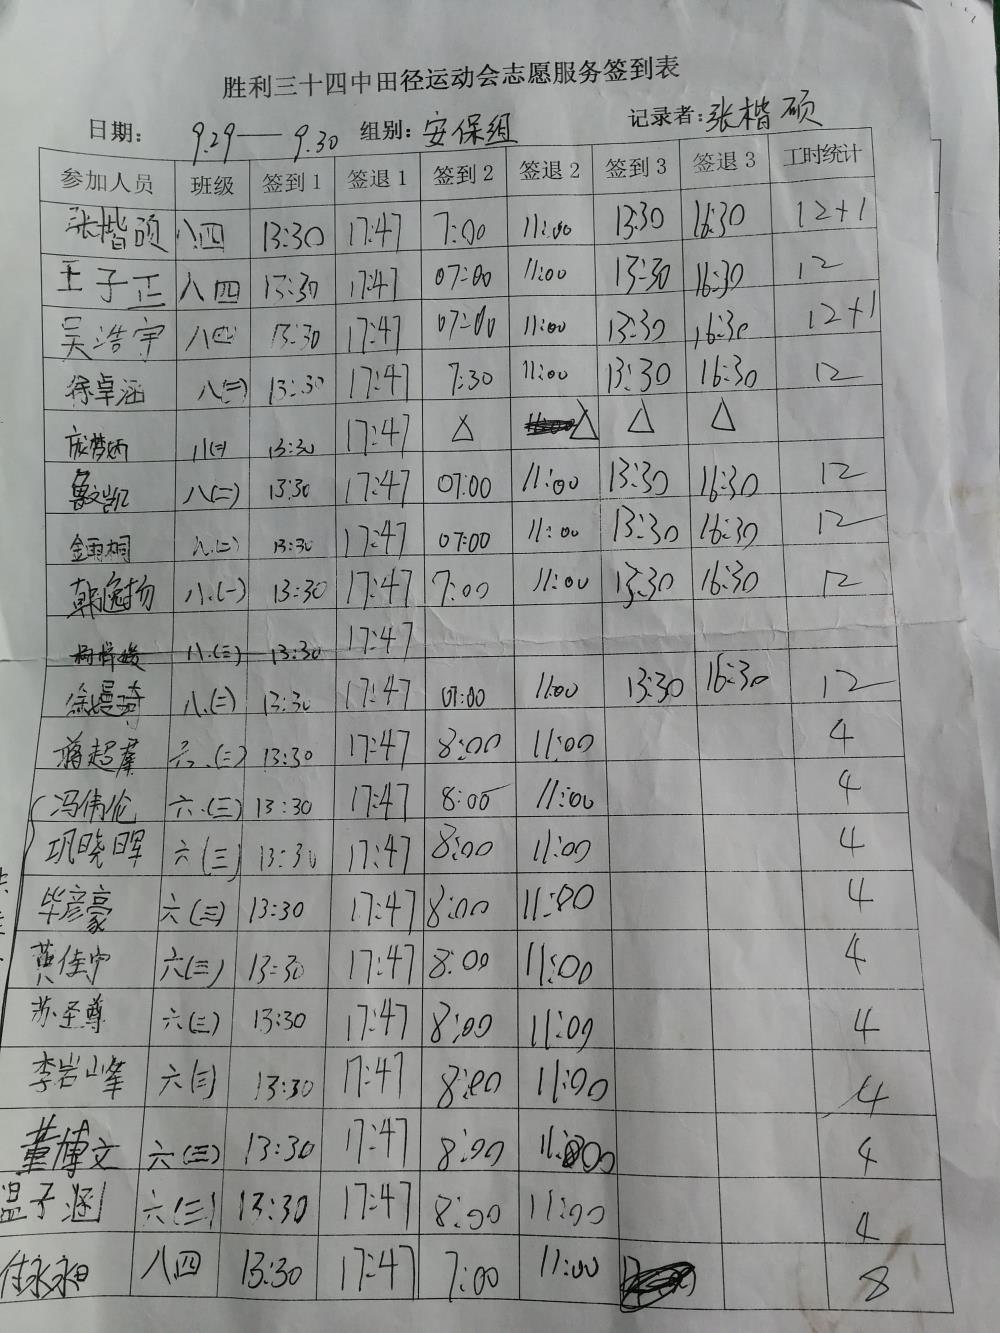 胜利三十四中田径运动会志愿服务签到表
日期: 9.29—9.30 组别: 安保组 记录者: 张楷硕
参加人员 班级 签到1 签退1 签到2 签退2 签到3 签退3 工时统计
张楷硕 八.四 13:30 17:47 7:00 11:00 13:30 16:30 12+1
王子正 八四 13:30 17:47 07:00 11:00 13:30 16:30 12
吴浩宇 八四 13:30 17:47 07:00 11:00 13:30 16:30 12+1
徐卓涵 八(三) 13:30 17:47 7:30 11:00 13:30 16:30 12
13:30 17:47 △ △ △ △
鲁文凯 八(二) 13:30 17:47 07:00 11:00 13:30 16:30 12
金雨桐 八.(二) 13:30 17:47 07:00 11:00 13:30 16:30 12
韩逸扬 八.(一) 13:30 17:47 7:00 11:00 13:30 16:30 12
八.(三) 13:30 17:47
徐嫚琦 八.(二) 13:30 17:47 07:00 11:00 13:30 16:30 12
蒋超蓁 六.(三) 13:30 17:47 8:00 11:00 4
冯伟伦 六.(三) 13:30 17:47 8:00 11:00 4
巩晓晖 六(三) 13:30 17:47 8:00 11:00 4
毕彦豪 六(三) 13:30 17:47 8:00 11:00 4
黄佳宁 六(三) 13:30 17:47 8:00 11:00 4
苏圣尊 六(三) 13:30 17:47 8:00 11:00 4
李岩峰 六(三) 13:30 17:47 8:00 11:00 4
董博文 六(三) 13:30 17:47 8:00 11:00 4
温子涵 六(三) 13:30 17:47 8:00 11:00 4
八四 13:30 17:47 7:00 11:00 8